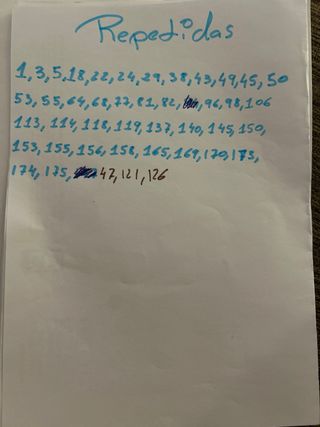 Repetidas
1, 3, 5, 18, 22, 24, 29, 38, 43, 49, 45, 50
53, 55, 64, 68, 77, 81, 82, 96, 98, 106
113, 114, 118, 119, 137, 140, 145, 150,
153, 155, 156, 158, 165, 169, 170, 173,
174, 175, 42, 121, 126